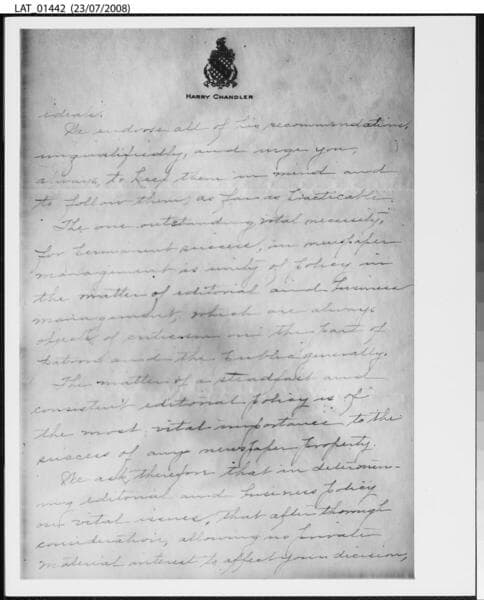 LAT_01442 (23/07/2008)
HARRY CHANDLER
ideas.
We endorse all of his recommendations,
unqualifiedly, and urge you,
always, to keep them in mind and
to follow them, as far as practicable.
The one outstanding vital necessity,
for permanent success, in newspaper
management is unity of policy in
the matter of editorial and business
management, which are always
of criticism on the part of
patrons and the public generally.
The matter of a steadfast and
consistent editorial policy is of
the most vital importance to the
success of any newspaper property.
We ask, therefore that in determin-
ing editorial and business policy
on vital issues, that after thorough
consideration, allowing no private
material interest to affect your decision,